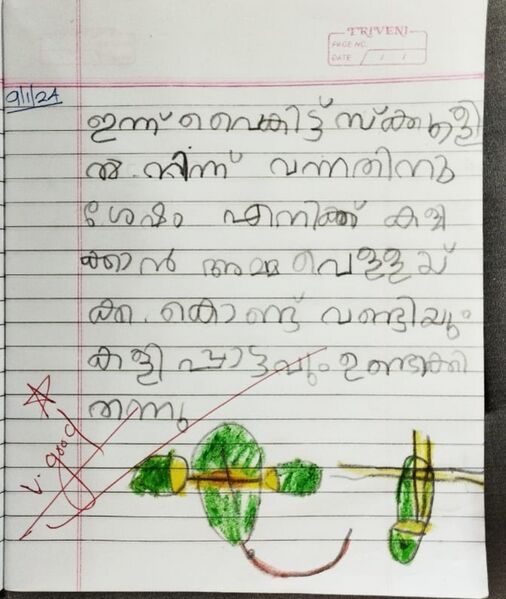 TRIVENI
PAGE NO.
DATE / /
9/1/24
ഇന്ന് വൈകിട്ട് സ്ക്കൂളി
ൽ നിന്ന് വന്നതിനു
ശേഷം എനിക്ക് കളി
ക്കാൻ അമ്മ വെള്ളയ്
ക്ക കൊണ്ട് വണ്ടിയും
കളി പ്പാട്ടവും ഉണ്ടാക്കി
തന്നു
V. good